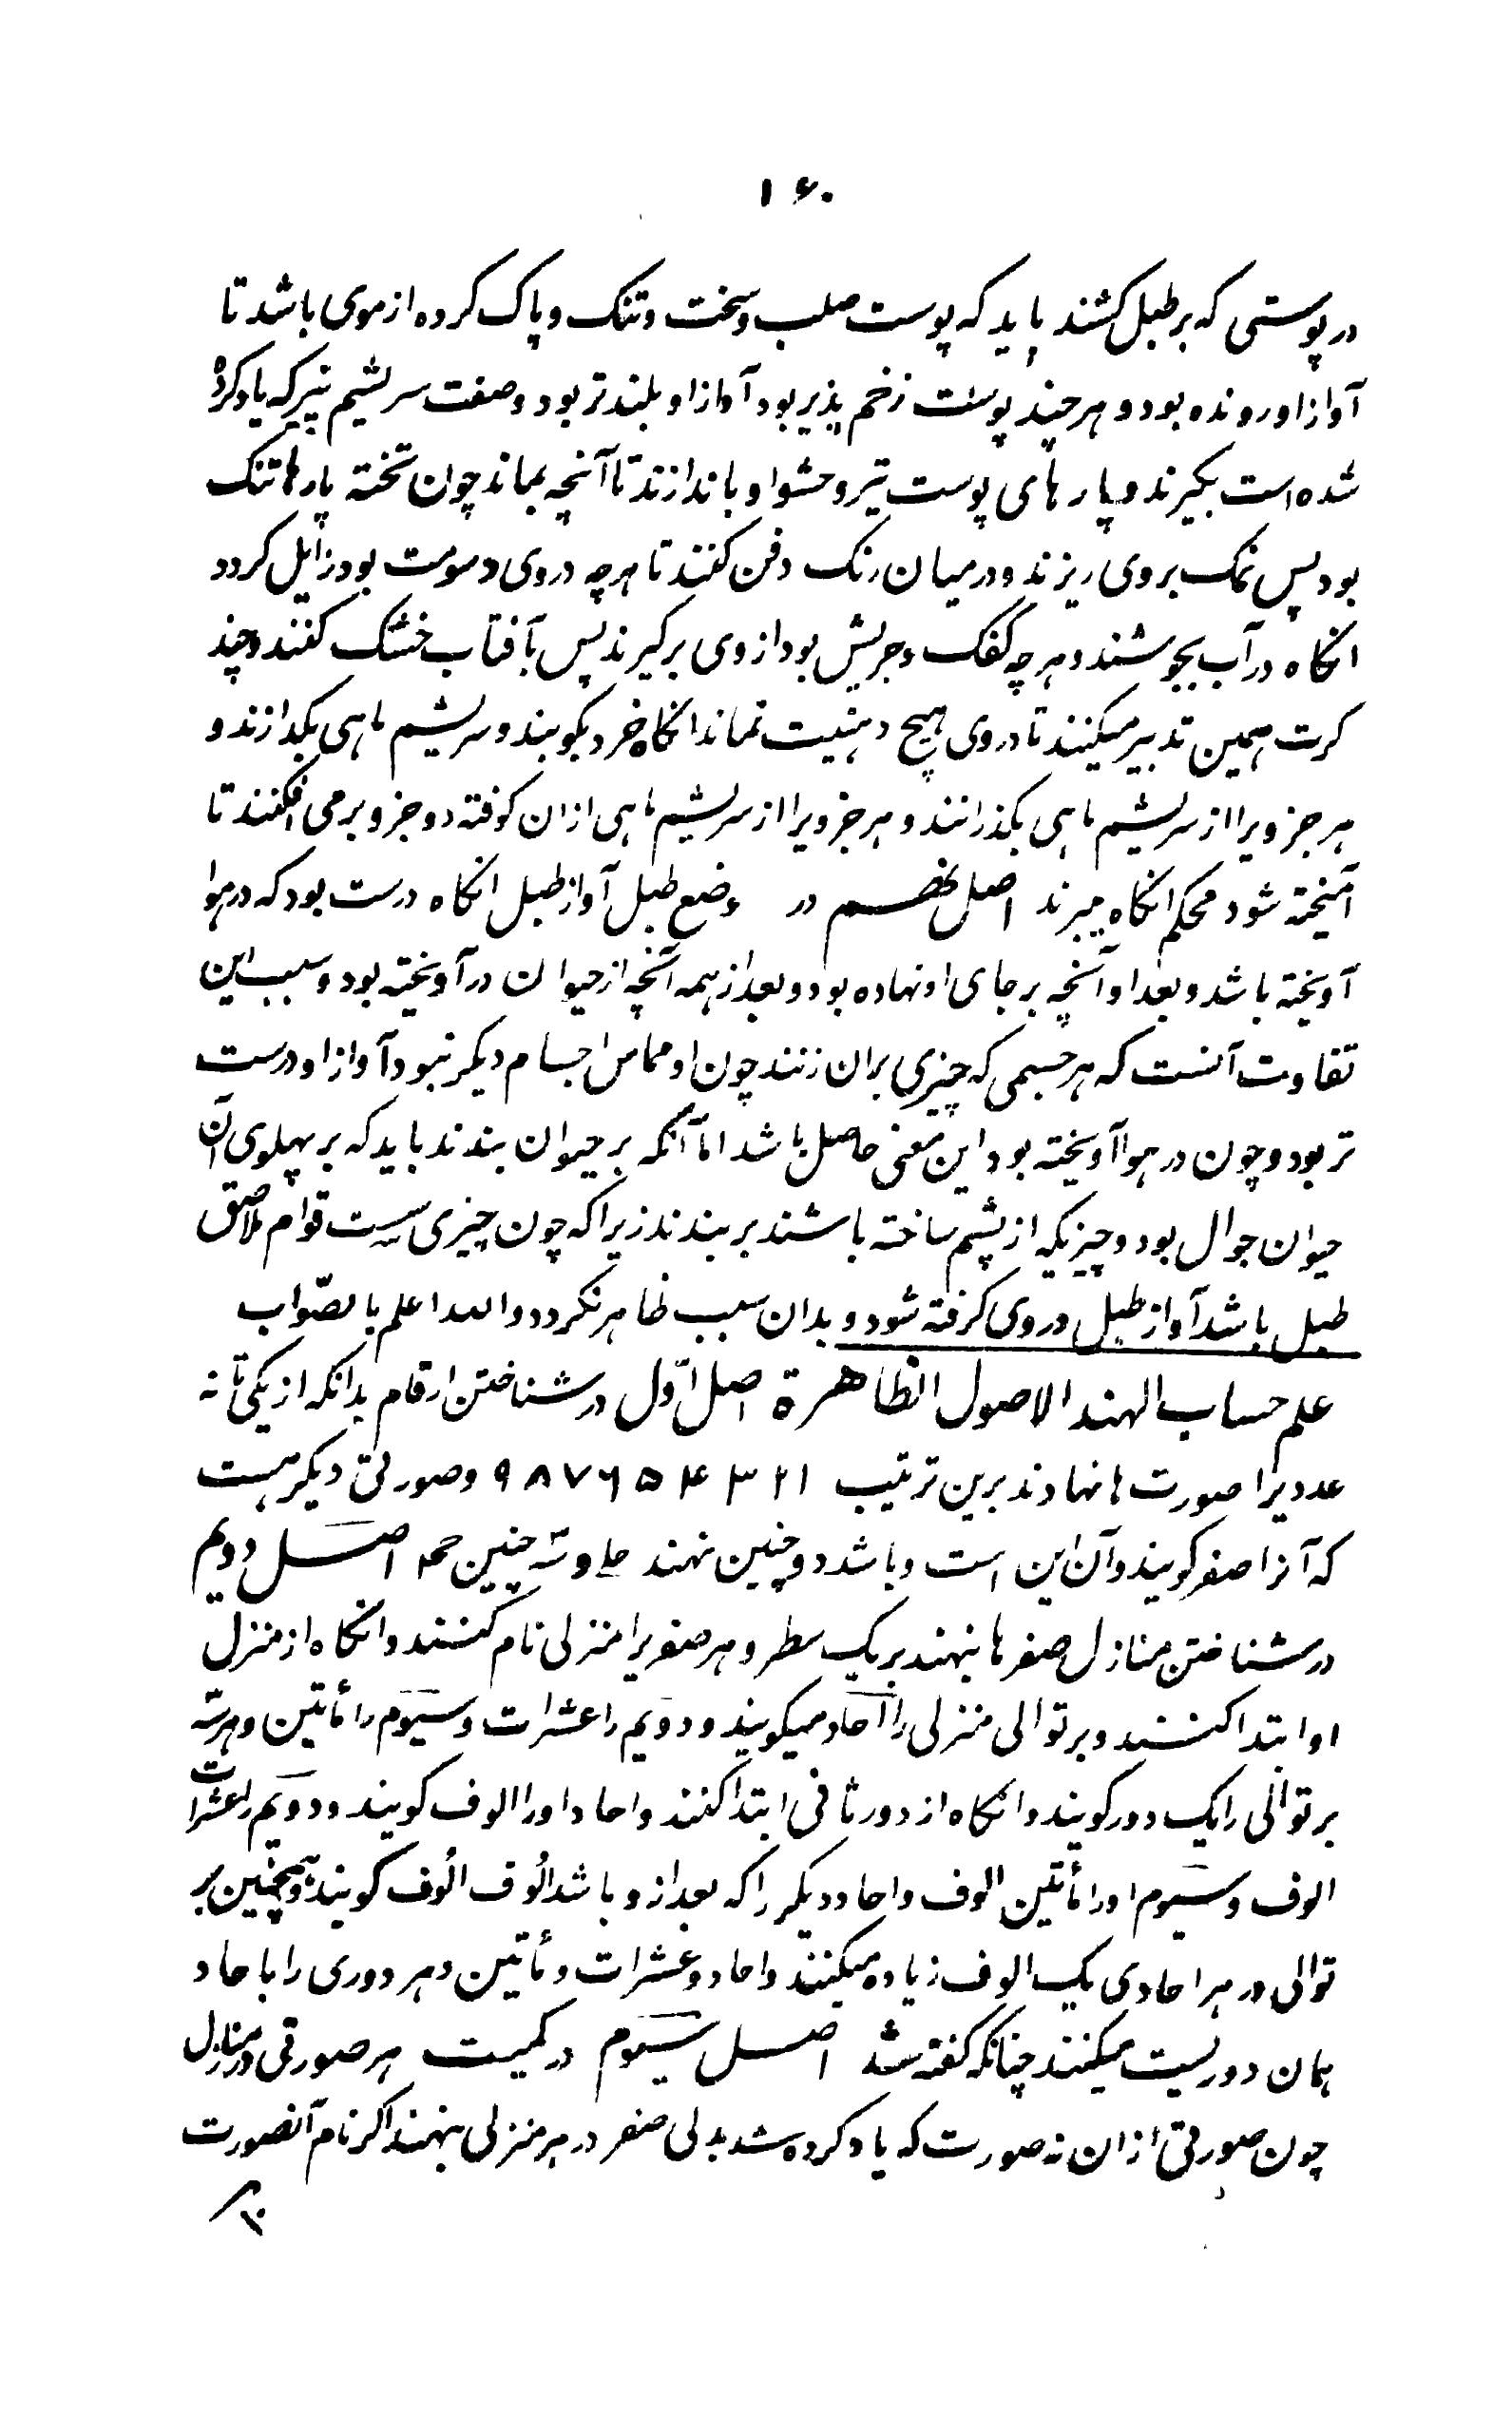 ۱۶۰
در پوستی که بر طبل کشند باید که پوست صلب و سخت و تنک و پاک کرده از موی باشد تا
آواز او رونده بود و هر چند پوست زخم پذیر بود آواز او بلند تر بود و صفت سریشم پنیر که یاد کرده
شده است بکیرند و پارهای پوست تیر و حشو او باندازند تا آنچه بماند چون تخته پارها تنک
بود پس نمک بروی ریزند و در میان رنک دفن کنند تا هر چه در وی دسومت بود زایل کردد
انکاه در آب بجوشند و هر چه کفک و جریش بود از وی برکیرند پس بآفتاب خشک کنند و چند
کرت همین تدبیر میکنند تا در وی هیچ دهنیت نماند انکاه خرد بکوبند و سریشم ماهی بکدازند و
هر جزویرا از سریشم ماهی بکذرانند و هر جزویرا از سریشم ماهی ازان کوفته دو جزو بر می افکنند تا
آمیخته شود محکم انکاه ببرند اصل نهم در وضع طبل آواز طبل انکاه درست بود که در هوا
آویخته باشد و بعد او آنچه بر جای او نهاده بود و بعد از همه آنچه از حیوان در آویخته بود و سبب این
تفاوت آنست که هر جسمی که چیزی بران زنند چون او مماس اجسام دیکر نبود آواز او درست
تر بود و چون در هوا آویخته بود این معنی حاصل باشد اما آنکه بر حیوان بندند باید که بر پهلوی آن
حیوان جوال بود و چیزیکه از پشم ساخته باشند بر بندند زیرا که چون چیزی سست قوام ملاصق
طبل باشد آواز طبل در وی کرفته شود و بدان سبب ظاهر نکردد والله اعلم بالصّواب
علم حساب الهند الاصول الظاهرة اصل اوّل در شناختن ارقام بدانکه از یکی تا نه
عدد یرا صورت ها نهادند برین ترتیب ۱ ۲ ۳ ۴ ۵ ۶ ۷ ۸ ۹ و صورتی دیکر هست
که آنرا صفر کویند و آن این است و باشد دو چنین نهند و سه چنین اصل دویم
در شناختن منازل صفرها بنهند بر یک سطر و هر صفریرا منزلی نام کنند و انکاه از منزل
او ابتدا کنند و بر توالی منزلی را آحاد میکویند و دویم را عشرات و سیوم را مأتین و هر سه
بر توالی را یک دور کویند و انکاه از دور ثانی ابتدا کنند و احاد او را الوف کویند و دویم را عشرات
الوف و سیوم او را مأتین الوف و احاد دیکر را که بعد ازو باشد الوف الوف کویند و همچنین بر
توالی در هر احادی یک الوف زیاده میکنند و احاد و عشرات و مأتین و هر دوری را باحاد
همان دور نسبت میکنند چنانکه کفته شد اصل سیوم در کمیت هر صورتی در منازل
چون صورتی ازان نه صورت که یاد کرده شد بدلی صفر در هر منزلی بنهند اکر نام آنصورت